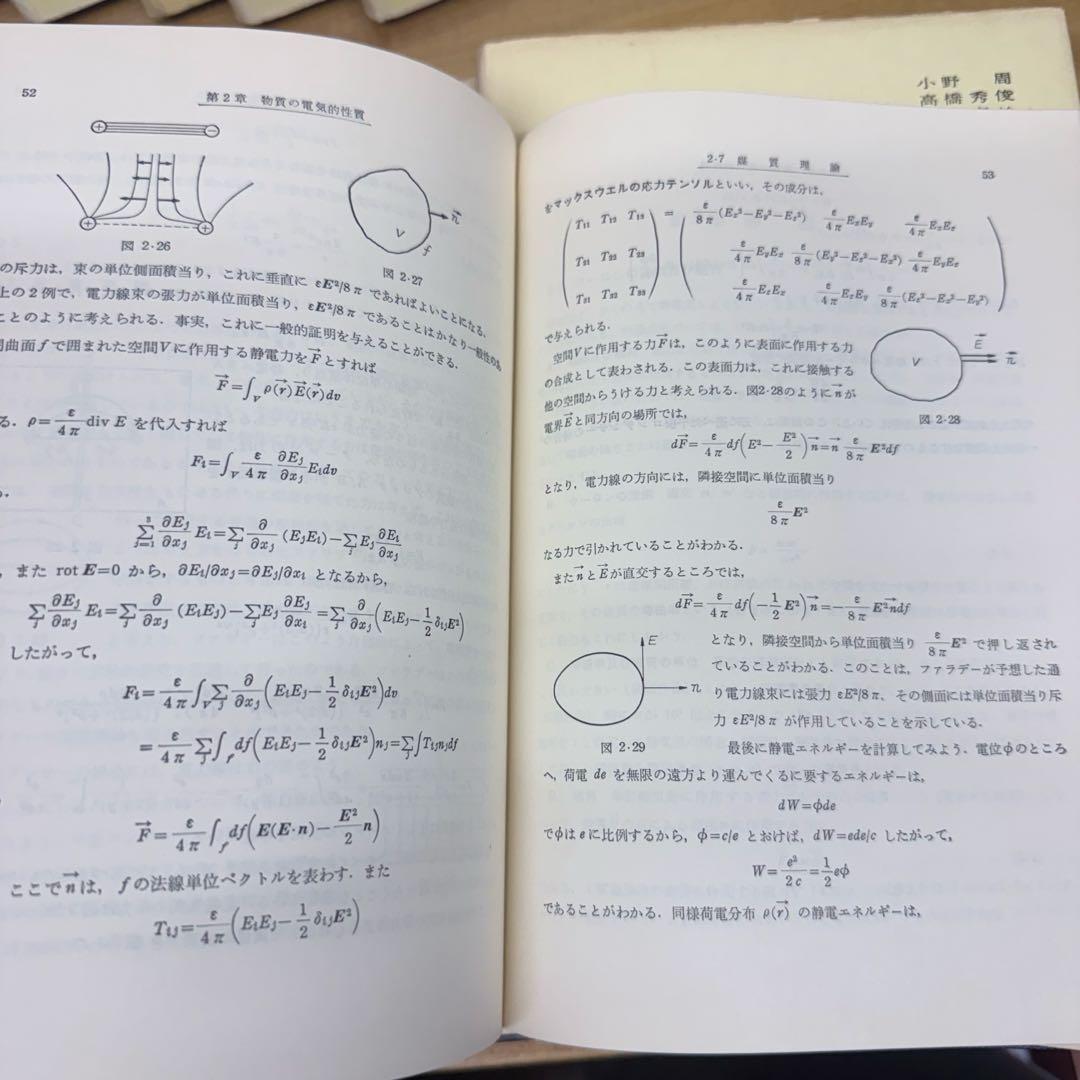 小野 周
高橋秀俊
52
第2章 物質の電気的性質
図 2·26
V
f
n⃗
図 2·27
の斥力は，束の単位側面積当り，これに垂直に εE²/8π であればよいことになる．
上の2例で，電力線束の張力が単位面積当り，εE²/8π であることはかなり一般性のあ
ことのように考えられる．事実，これに一般的証明を与えることができる．
曲面 f で囲まれた空間Vに作用する静電力を F⃗ とすれば
F⃗=∫_V ρ(r⃗)E⃗(r⃗)dv
る．ρ=ε/4π div E を代入すれば
F_i=∫_V ε/4π ∂E_j/∂x_j E_i dv
∑_{j=1}^{3} ∂E_j/∂x_j E_i=∑_j ∂/∂x_j (E_jE_i)−∑_j E_j ∂E_i/∂x_j
，また rot E=0 から，∂E_i/∂x_j=∂E_j/∂x_i となるから，
∑_j ∂E_j/∂x_j E_i=∑_j ∂/∂x_j (E_iE_j)−∑_j E_j ∂E_j/∂x_i=∑_j ∂/∂x_j (E_iE_j−1/2 δ_{ij}E²)
したがって，
F_i=ε/4π ∫_V ∑_j ∂/∂x_j (E_iE_j−1/2 δ_{ij}E²)dv
=ε/4π ∑_j ∫_f df(E_iE_j−1/2 δ_{ij}E²)n_j=∑_j ∫T_{ij}n_jdf
F⃗=ε/4π ∫_f df(E(E·n)−E²/2 n)
ここで n⃗ は，f の法線単位ベクトルを表わす．また
T_{ij}=ε/4π (E_iE_j−1/2 δ_{ij}E²)
2·7 媒質理論
53
をマックスウエルの応力テンソルといい，その成分は，
(T₁₁ T₁₂ T₁₃) = (ε/8π(E_x²−E_y²−E_z²) ε/4π E_xE_y ε/4π E_xE_z)
(T₂₁ T₂₂ T₂₃) (ε/4π E_yE_x ε/8π(E_y²−E_x²−E_z²) ε/4π E_yE_z)
(T₃₁ T₃₂ T₃₃) (ε/4π E_zE_x ε/4π E_zE_y ε/8π(E_z²−E_x²−E_y²))
で与えられる．
空間Vに作用する力 F⃗ は，このように表面に作用する力
の合成として表わされる．この表面力は，これに接触する
他の空間からうける力と考えられる．図2·28のように n⃗ が
電界 E⃗ と同方向の場所では，
V
E⃗
n⃗
図 2·28
dF⃗=ε/4π df(E²−E²/2)n⃗=n⃗ ε/8π E²df
となり，電力線の方向には，隣接空間に単位面積当り
ε/8π E²
なる力で引かれていることがわかる．
また n⃗ と E⃗ が直交するところでは，
dF⃗=ε/4π df(−1/2 E²)n⃗=−ε/8π E²n⃗df
E
n
図 2·29
となり，隣接空間から単位面積当り ε/8π E² で押し返され
ていることがわかる．このことは，ファラデーが予想した通
り電力線束には張力 εE²/8π，その側面には単位面積当り斥
力 εE²/8π が作用していることを示している．
最後に静電エネルギーを計算してみよう．電位φのところ
へ，荷電 de を無限の遠方より運んでくるに要するエネルギーは，
dW=φde
でφは e に比例するから，φ=c/e とおけば，dW=ede/c したがって，
W=e²/2c=1/2 eφ
であることがわかる．同様荷電分布 ρ(r⃗) の静電エネルギーは，